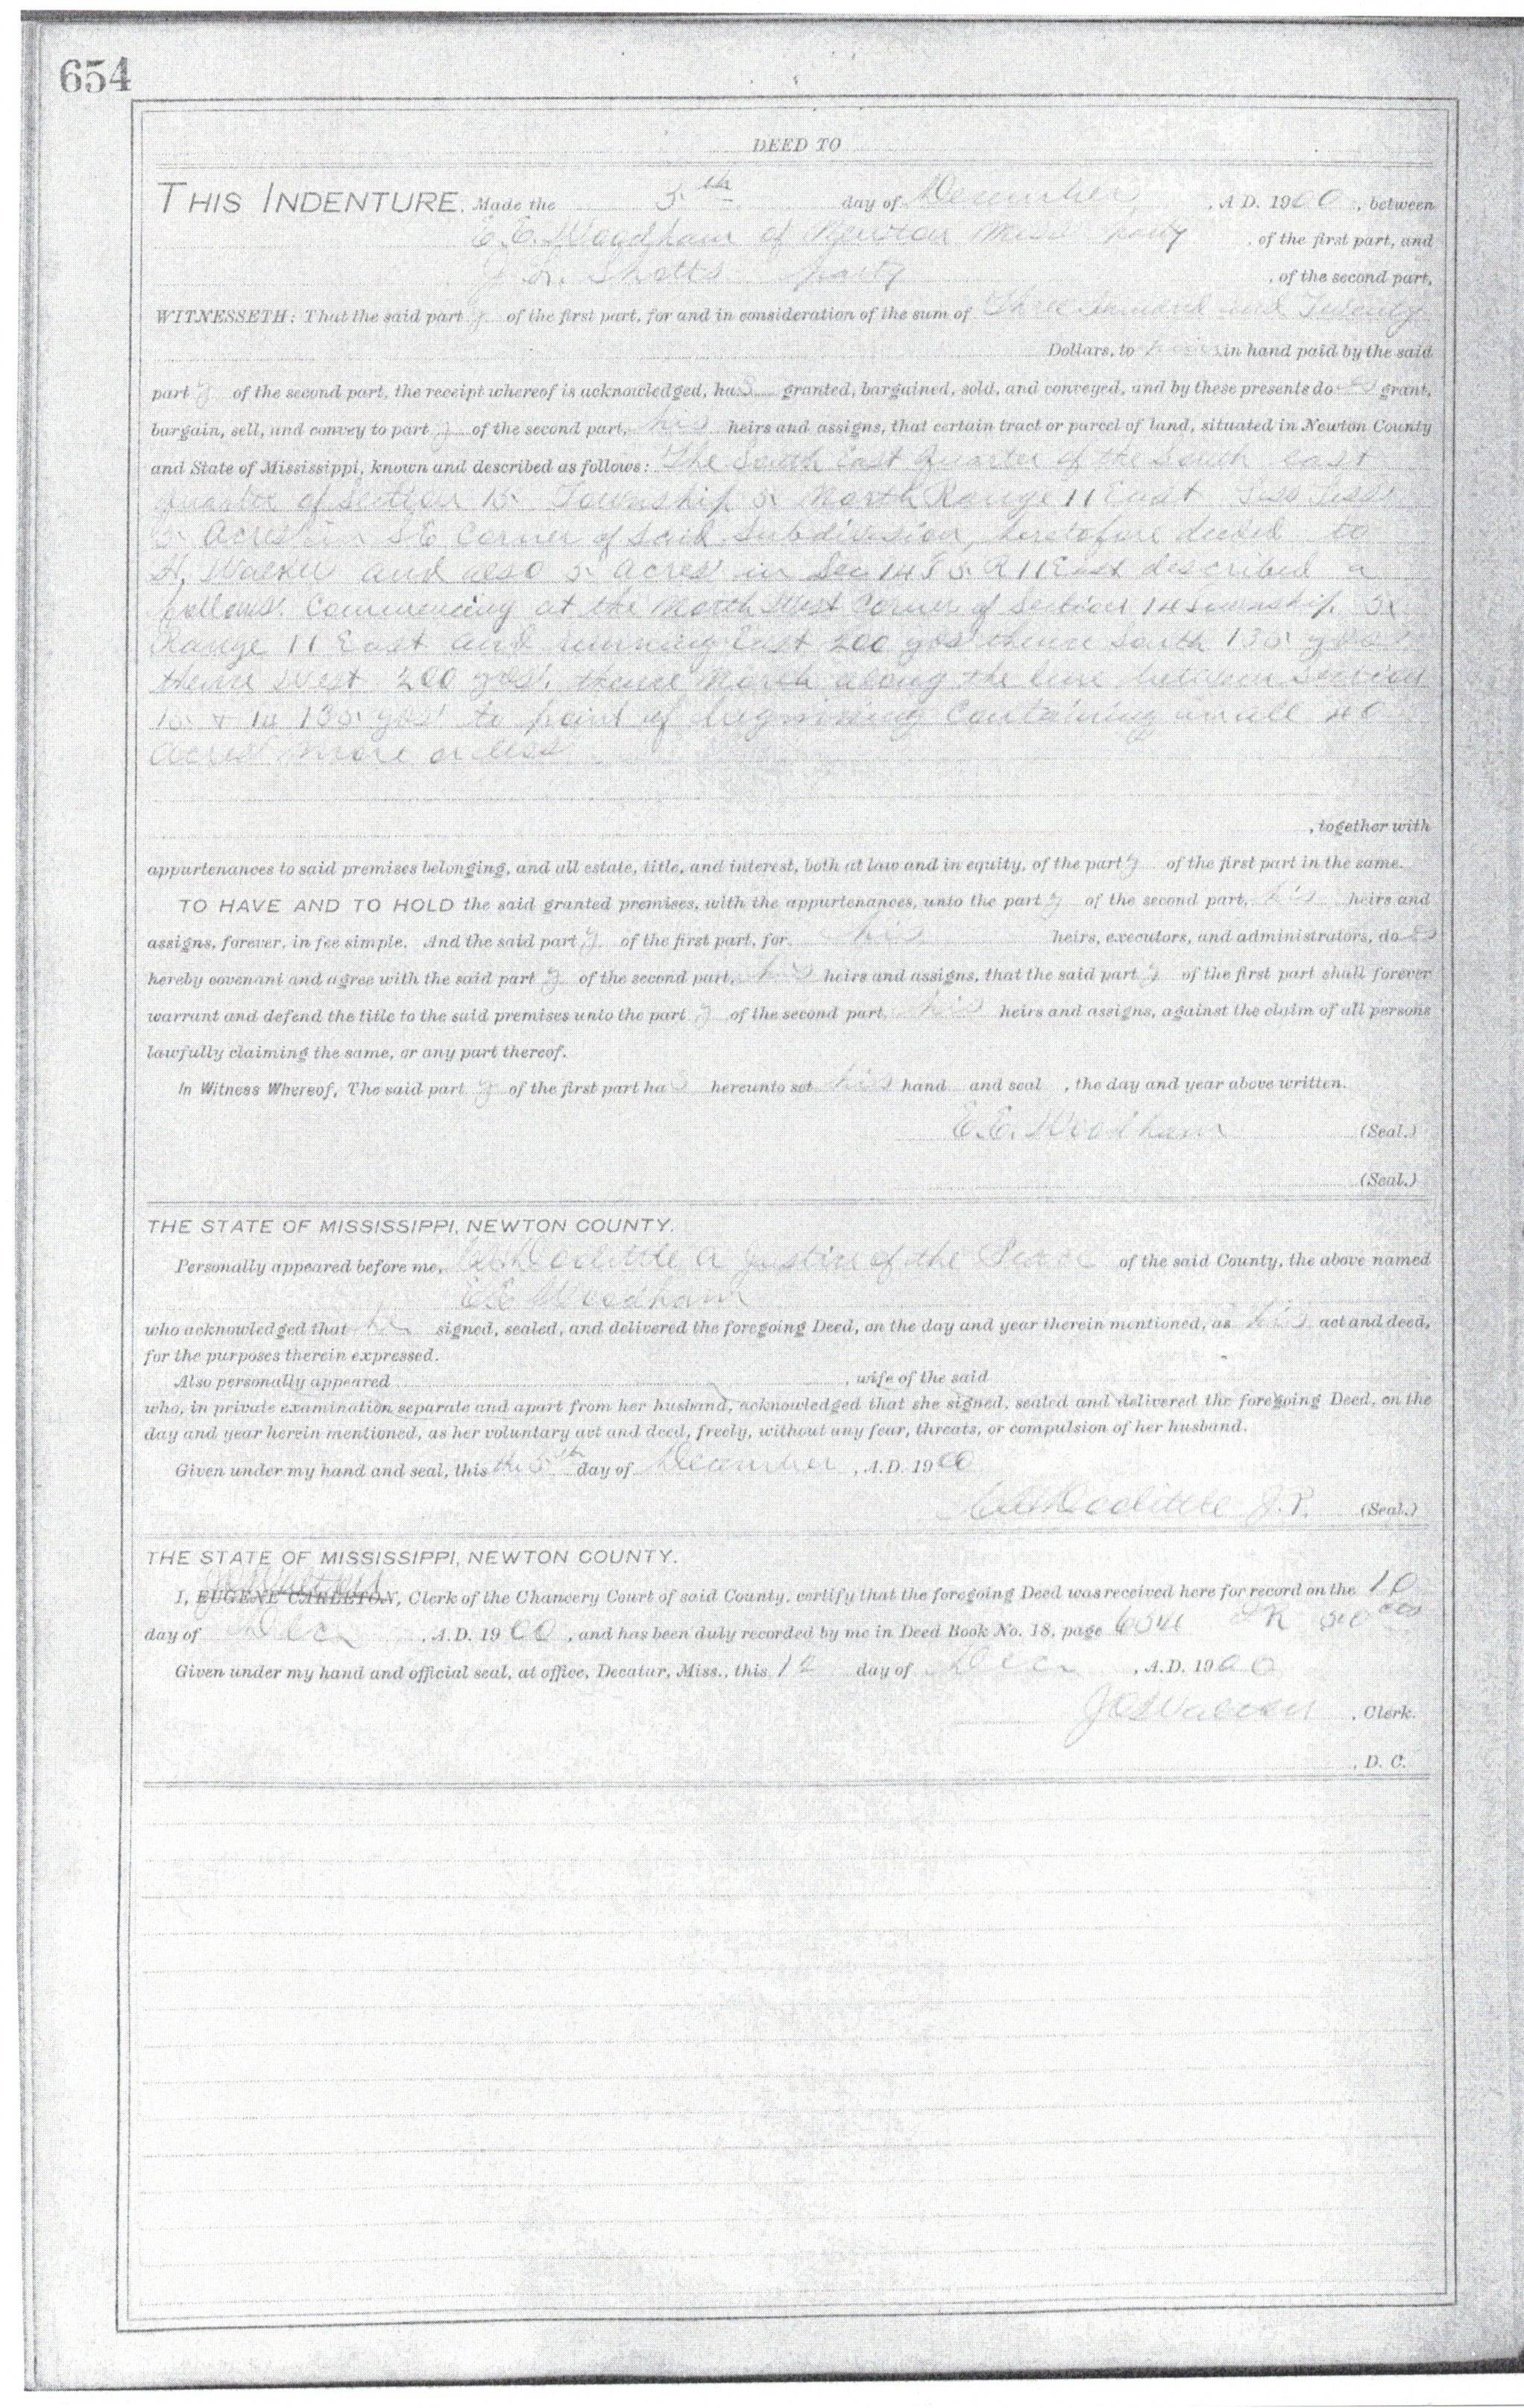 654
DEED TO
THIS INDENTURE, Made the 5th day of December, A.D. 1900, between
E. E. Woodham of Newton Miss party, of the first part, and
Shotts party, of the second part,
WITNESSETH: That the said party of the first part, for and in consideration of the sum of Three Hundred and Twenty
Dollars, to him in hand paid by the said
party of the second part, the receipt whereof is acknowledged, has granted, bargained, sold, and conveyed, and by these presents does grant,
bargain, sell, and convey to party of the second part, his heirs and assigns, that certain tract or parcel of land, situated in Newton County
and State of Mississippi, known and described as follows: The South East Quarter of the South east
quarter of Section 15 Township 5 North Range 11 East Less
5 Acres in SE Corner of Said Subdivision, heretofore deeded to
H. Walker and also 5 acres in Sec 14 T 5 R 11 East described a
follows. Commencing at the North West Corner of Section 14 Township 5
Range 11 East and running East 200 yds thence South 135 yds
thence West 200 yds. thence North along the line between Section
15 & 14 135 yds to point of beginning Containing in all 40
Acres more or less
, together with
appurtenances to said premises belonging, and all estate, title, and interest, both at law and in equity, of the party of the first part in the same.
TO HAVE AND TO HOLD the said granted premises, with the appurtenances, unto the party of the second part, his heirs and
assigns, forever, in fee simple. And the said party of the first part, for his heirs, executors, and administrators, does
hereby covenant and agree with the said party of the second part, his heirs and assigns, that the said party of the first part shall forever
warrant and defend the title to the said premises unto the party of the second part, his heirs and assigns, against the claim of all persons
lawfully claiming the same, or any part thereof.
In Witness Whereof, The said party of the first part has hereunto set his hand and seal, the day and year above written.
E. E. Woodham (Seal.)
(Seal.)
THE STATE OF MISSISSIPPI, NEWTON COUNTY.
Personally appeared before me, Doolittle a Justice of the Peace of the said County, the above named
E E Woodham
who acknowledged that he signed, sealed, and delivered the foregoing Deed, on the day and year therein mentioned, as his act and deed,
for the purposes therein expressed.
Also personally appeared , wife of the said
who, in private examination separate and apart from her husband, acknowledged that she signed, sealed and delivered the foregoing Deed, on the
day and year herein mentioned, as her voluntary act and deed, freely, without any fear, threats, or compulsion of her husband.
Given under my hand and seal, this the 5th day of December, A.D. 1900
Doolittle J. P. (Seal.)
THE STATE OF MISSISSIPPI, NEWTON COUNTY.
I, EUGENE CARLETON, Clerk of the Chancery Court of said County, certify that the foregoing Deed was received here for record on the 10
day of Dec, A.D. 1900, and has been duly recorded by me in Deed Book No. 18, page 654
Given under my hand and official seal, at office, Decatur, Miss., this 12 day of Dec, A.D. 1900
, Clerk.
, D. C.